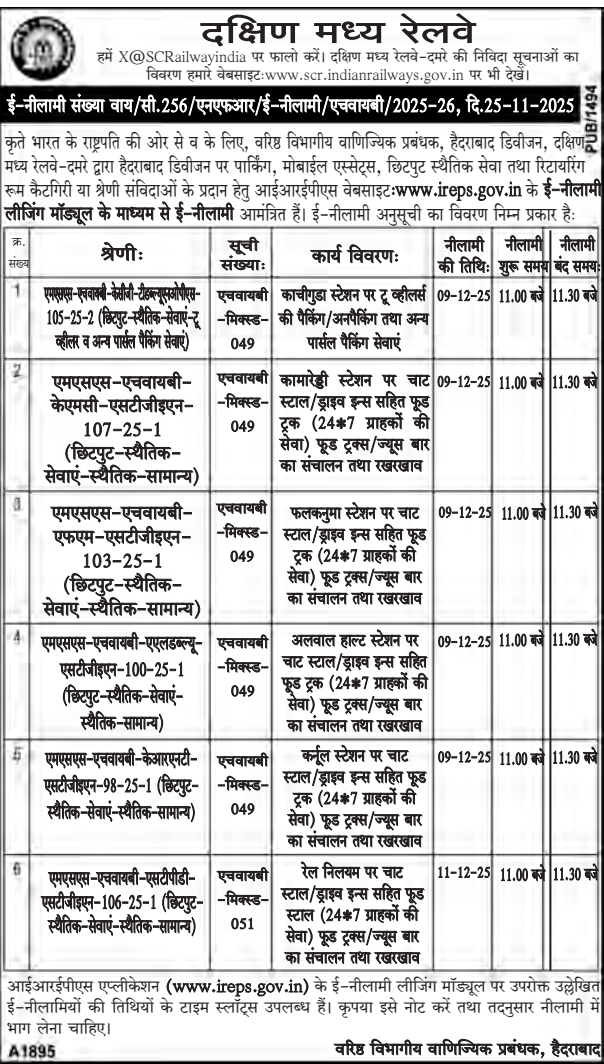 दक्षिण मध्य रेलवे
हमें X@SCRailwayindia पर फालो करें। दक्षिण मध्य रेलवे-दमरे की निविदा सूचनाओं का
विवरण हमारे वेबसाइटःwww.scr.indianrailways.gov.in पर भी देखें।
PUB/1494
ई-नीलामी संख्या वाय/सी.256/एनएफआर/ई-नीलामी/एचवायबी/2025-26, दि.25-11-2025
कृते भारत के राष्ट्रपति की ओर से व के लिए, वरिष्ठ विभागीय वाणिज्यिक प्रबंधक, हैदराबाद डिवीजन, दक्षिण
मध्य रेलवे-दमरे द्वारा हैदराबाद डिवीजन पर पार्किंग, मोबाईल एस्सेट्स, छिटपुट स्थैतिक सेवा तथा रिटायरिंग
रूम कैटगिरी या श्रेणी संविदाओं के प्रदान हेतु आईआरईपीएस वेबसाइटःwww.ireps.gov.in के ई-नीलामी
लीजिंग मॉड्यूल के माध्यम से ई-नीलामी आमंत्रित हैं। ई-नीलामी अनुसूची का विवरण निम्न प्रकार हैः
क्र.
संख्य
श्रेणीः
सूची
संख्याः
कार्य विवरणः
नीलामी
की तिथिः
नीलामी
शुरू समयः
नीलामी
बंद समयः
1
एमएसएस-एचवायबी-केसीजी-टीडब्ल्यूएसओपीएस-
105-25-2 (छिटपुट-स्थैतिक-सेवाएं-टू
व्हीलर व अन्य पार्सल पैकिंग सेवाएं)
एचवायबी
-मिक्स्ड-
049
काचीगुडा स्टेशन पर टू व्हीलर्स
की पैकिंग/अनपैकिंग तथा अन्य
पार्सल पैकिंग सेवाएं
09-12-25
11.00 बजे
11.30 बजे
2
एमएसएस-एचवायबी-
केएमसी-एसटीजीइएन-
107-25-1
(छिटपुट-स्थैतिक-
सेवाएं-स्थैतिक-सामान्य)
एचवायबी
-मिक्स्ड-
049
कामारेड्डी स्टेशन पर चाट
स्टाल/ड्राइव इन्स सहित फूड
ट्रक (24*7 ग्राहकों की
सेवा) फूड ट्रक्स/ज्यूस बार
का संचालन तथा रखरखाव
09-12-25
11.00 बजे
11.30 बजे
3
एमएसएस-एचवायबी-
एफएम-एसटीजीइएन-
103-25-1
(छिटपुट-स्थैतिक-
सेवाएं-स्थैतिक-सामान्य)
एचवायबी
-मिक्स्ड-
049
फलकनुमा स्टेशन पर चाट
स्टाल/ड्राइव इन्स सहित फूड
ट्रक (24*7 ग्राहकों की
सेवा) फूड ट्रक्स/ज्यूस बार
का संचालन तथा रखरखाव
09-12-25
11.00 बजे
11.30 बजे
4
एमएसएस-एचवायबी-एएलडब्ल्यू-
एसटीजीइएन-100-25-1
(छिटपुट-स्थैतिक-सेवाएं-
स्थैतिक-सामान्य)
एचवायबी
-मिक्स्ड-
049
अलवाल हाल्ट स्टेशन पर
चाट स्टाल/ड्राइव इन्स सहित
फूड ट्रक (24*7 ग्राहकों की
सेवा) फूड ट्रक्स/ज्यूस बार
का संचालन तथा रखरखाव
09-12-25
11.00 बजे
11.30 बजे
5
एमएसएस-एचवायबी-केआरएनटी-
एसटीजीइएन-98-25-1 (छिटपुट-
स्थैतिक-सेवाएं-स्थैतिक-सामान्य)
एचवायबी
-मिक्स्ड-
049
कर्नूल स्टेशन पर चाट
स्टाल/ड्राइव इन्स सहित फूड
ट्रक (24*7 ग्राहकों की
सेवा) फूड ट्रक्स/ज्यूस बार
का संचालन तथा रखरखाव
09-12-25
11.00 बजे
11.30 बजे
6
एमएसएस-एचवायबी-एसटीपीडी-
एसटीजीइएन-106-25-1 (छिटपुट-
स्थैतिक-सेवाएं-स्थैतिक-सामान्य)
एचवायबी
-मिक्स्ड-
051
रेल निलयम पर चाट
स्टाल/ड्राइव इन्स सहित फूड
स्टाल (24*7 ग्राहकों की
सेवा) फूड ट्रक्स/ज्यूस बार
का संचालन तथा रखरखाव
11-12-25
11.00 बजे
11.30 बजे
आईआरईपीएस एप्लीकेशन (www.ireps.gov.in) के ई-नीलामी लीजिंग मॉड्यूल पर उपरोक्त उल्लेखित
ई-नीलामियों की तिथियों के टाइम स्लॉट्स उपलब्ध हैं। कृपया इसे नोट करें तथा तदनुसार नीलामी में
भाग लेना चाहिए।
A1895
वरिष्ठ विभागीय वाणिज्यिक प्रबंधक, हैदराबाद